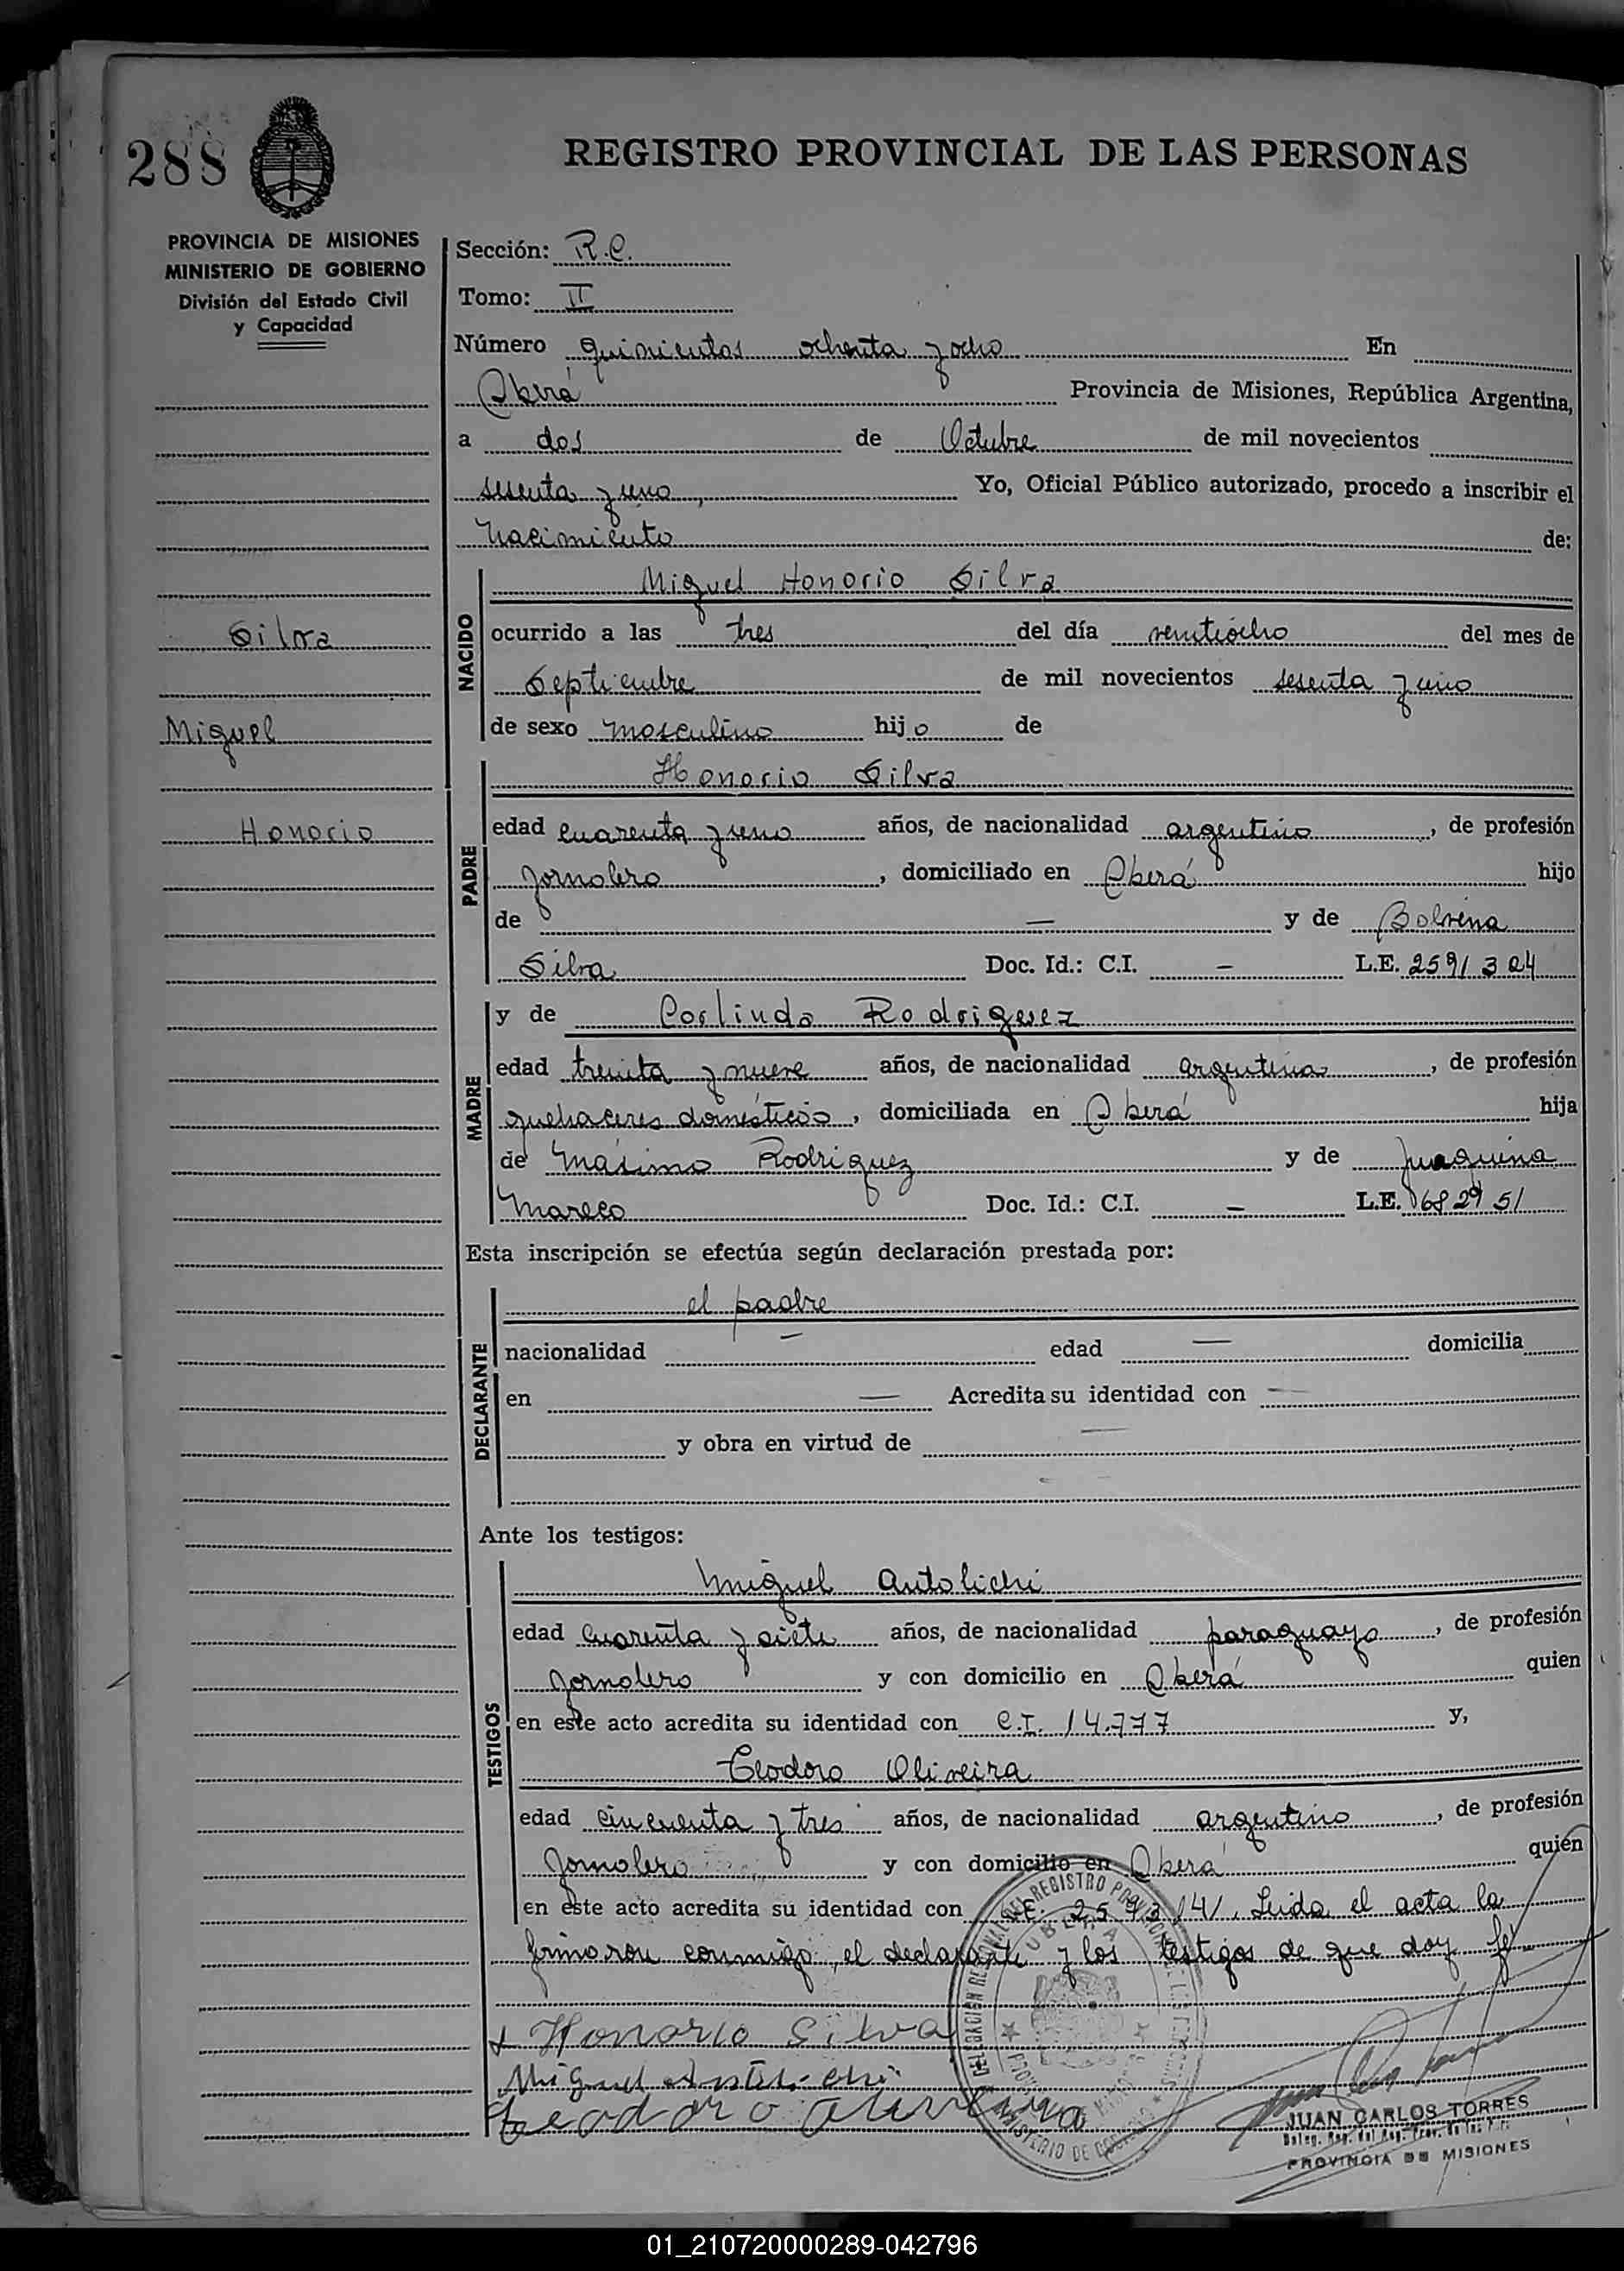 288
REGISTRO PROVINCIAL DE LAS PERSONAS
PROVINCIA DE MISIONES
MINISTERIO DE GOBIERNO
División del Estado Civil
y Capacidad
Silva
Miguel
Honorio
Sección: R.C.
Tomo: II
Número quinientos ochenta y ocho En
Oberá Provincia de Misiones, República Argentina,
a dos de Octubre de mil novecientos
sesenta y uno, Yo, Oficial Público autorizado, procedo a inscribir el
Nacimiento de:
NACIDO
Miguel Honorio Silva
ocurrido a las tres del día veintiocho del mes de
Septiembre de mil novecientos sesenta y uno
de sexo masculino hijo de
PADRE
Honorio Silva
edad cuarenta y uno años, de nacionalidad argentino, de profesión
Jornalero, domiciliado en Oberá hijo
de — y de Balvina
Silva Doc. Id.: C.I. — L.E.
MADRE
y de Rodriguez
edad treinta y nueve años, de nacionalidad argentina, de profesión
quehaceres domésticos, domiciliada en Oberá hija
de Máximo Rodriguez y de Juaquina
Mareco Doc. Id.: C.I. — L.E.
Esta inscripción se efectúa según declaración prestada por:
DECLARANTE
el padre
nacionalidad — edad — domicilia
en — Acredita su identidad con —
y obra en virtud de —
Ante los testigos:
TESTIGOS
Miguel
edad cuarenta y siete años, de nacionalidad paraguayo, de profesión
Jornalero y con domicilio en Oberá quien
en este acto acredita su identidad con C.I. 14.777 y,
Teodoro Oliveira
edad cincuenta y tres años, de nacionalidad argentino, de profesión
Jornalero y con domicilio en Oberá quién
en este acto acredita su identidad con L.E. Leida el acta la
firmaron conmigo, el declarante y los testigos de que doy fé
Honorio Silva
Miguel
Teodoro Oliveira
JUAN CARLOS TORRES
PROVINCIA DE MISIONES
01_210720000289-042796